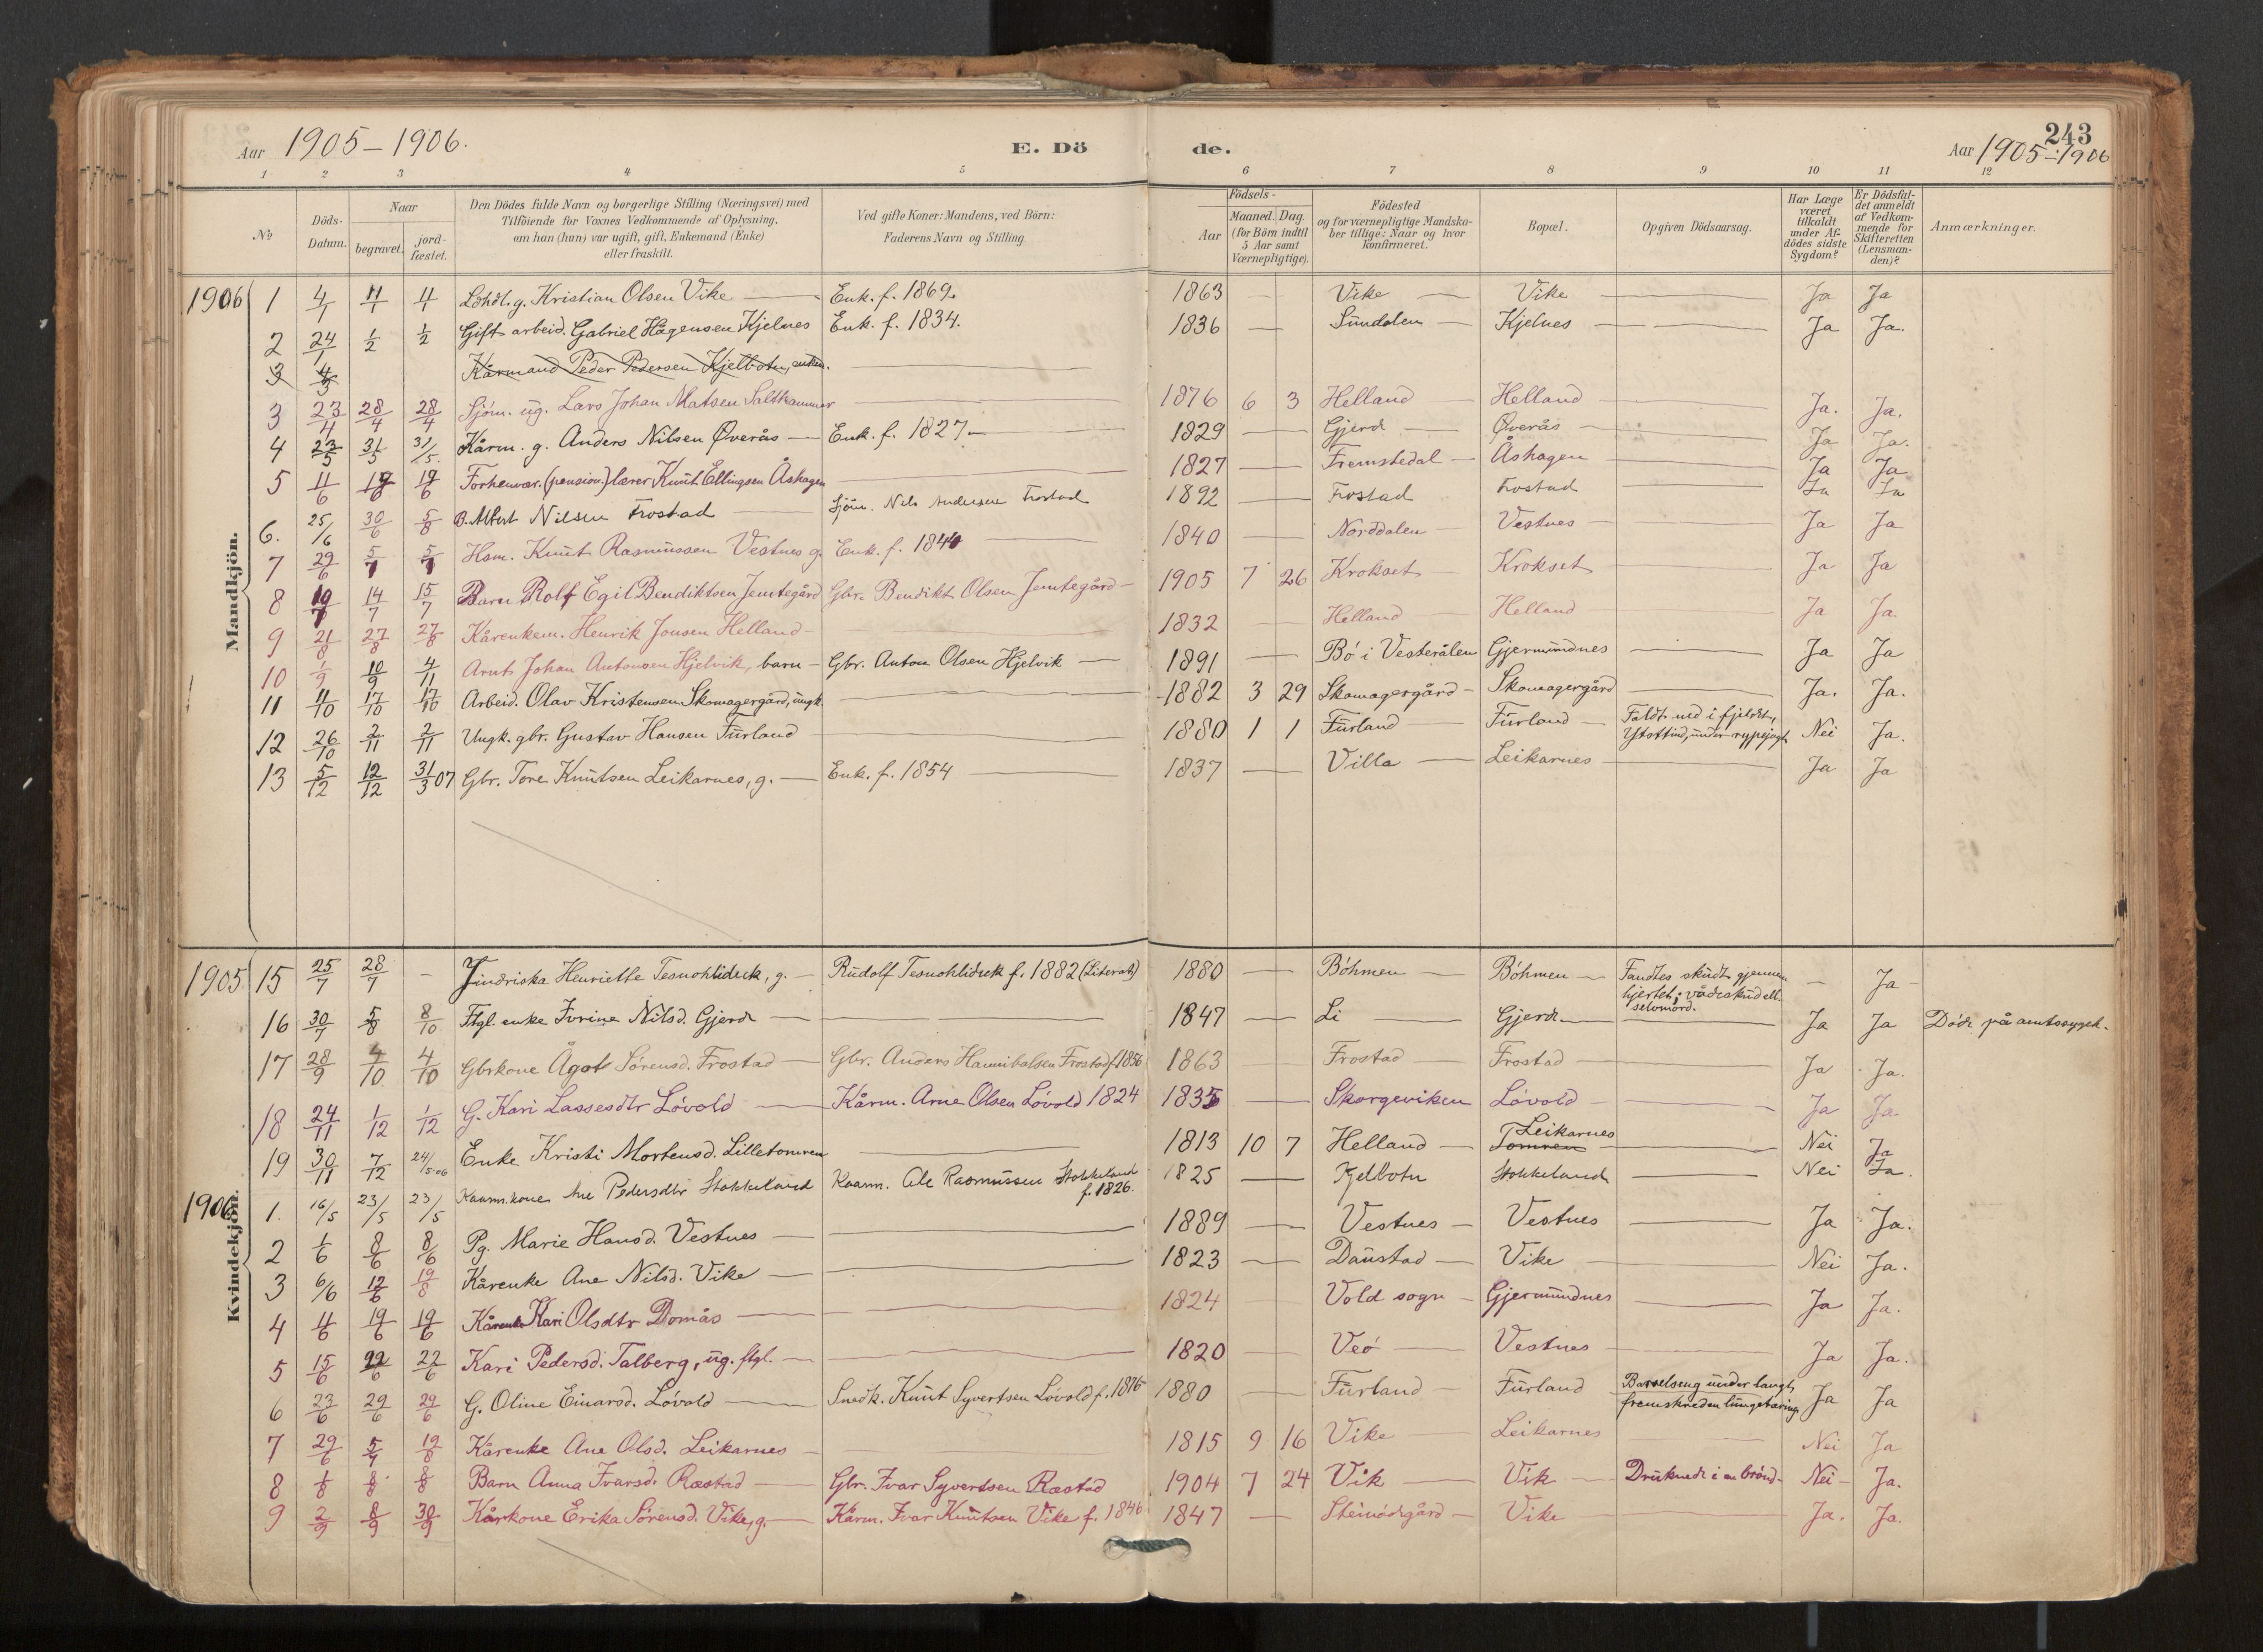 243
Aar 1905–1906. E. Dö de. Aar 1905–1906
1 2 3 4 5 6 7 8 9 10 11 12
№ Döds-Datum. Naar begravet. jord-fæstet. Den Dödes fulde Navn og borgerlige Stilling (Næringsvei) med Tilföiende for Voxnes Vedkommende af Oplysning, om han (hun) var ugift, gift, Enkemand (Enke) eller fraskilt. Ved gifte Koner: Mandens, ved Börn: Faderens Navn og Stilling. Födsels- Aar Maaned. Dag. (for Börn indtil 5 Aar samt Værnepligtige). Födested og for værnepligtige Mandskaber tillige: Naar og hvor Konfirmeret. Bopæl. Opgiven Dödsaarsag. Har Læge været tilkaldt under Afdödes sidste Sygdom? Er Dödsfaldet anmeldt af Vedkommende for Skifteretten (Lensmanden)? Anmærkninger.
Mandkjön.
1906 1 4/1 11/1 11 g. Kristian Olsen Vike Enk. f. 1869. 1863 Vike Vike Ja Ja
2 24/1 1/2 1/2 Gift arbeid. Gabriel Hågensen Kjelnes Enk. f. 1834. 1836 Sundalen Kjelnes Ja Ja.
3 4/3 Kårmand Peder Pedersen Kjelbotn, enkem.
3 23/4 28/4 28/4 Sjöm. ug. Lars Johan Matsen Saltkammer 1876 6 3 Helland Helland Ja. Ja.
4 23/5 31/5 31/5. Kårm. g. Anders Nilsen Øverås Enk. f. 1827. 1829 Gjerd Øverås Ja Ja.
5 11/6 19/6 19/6 Forhenvær. (pension.) lærer Knut Ellingsen Åshagen 1827 Fremstedal Åshagen Ja Ja
6. 25/6 30/6 5/8 B. Albert Nilsen Frostad Sjöm. Nils Andersen Frostad 1892 Frostad Frostad Ja Ja
7 29/6 5/7 5/7 Hsm. Knut Rasmussen Vestnes g. Enk. f. 1840 1840 Norddalen Vestnes Ja Ja
8 10/7 14/7 15/7 Barn Rolf Egil Bendiktsen Jemtegård Gbr. Bendikt Olsen Jemtegård 1905 7 26 Krokset Krokset Ja Ja
9 21/8 27/8 27/8 Kårenkem. Henrik Jonsen Helland 1832 Helland Helland Ja Ja.
10 1/9 10/9 4/11 Arnt Johan Antonsen Hjelvik, barn Gbr. Anton Olsen Hjelvik 1891 Bö i Vesterålen Gjermundnes Ja Ja
11 11/10 17/10 17/10 Arbeid. Olav Kristensen Skomagergård, ungk. 1882 3 29 Skomagergård Skomagergård Ja. Ja.
12 26/10 2/11 2/11 Ungk. gbr. Gustav Hansen Furland 1880 1 1 Furland Furland Faldt ned i fjeldet, Ystottind, under rypejagt Nei Ja.
13 5/12 12/12 31/3 07 Gbr. Tore Knutsen Leikarnes, g. Enk. f. 1854 1837 Villa Leikarnes Ja Ja
Kvindekjön.
1905 15 25/7 28/7 – Jindriska Henriette Tesnohlidsek, g. Rudolf Tesnohlidsek f. 1882 (Literat) 1880 Böhmen Böhmen Fandtes skudt gjennem hjertet; vådeskud ell. selvmord. – Ja
16 30/7 5/8 8/10 Ftgl. enke Ivrine Nilsd. Gjerde 1847 Li Gjerde Ja Ja Döde på amtssygeh.
17 28/9 4/10 4/10 Gbrkone Ågot Sörensd. Frostad Gbr. Anders Hannibalsen Frostad f. 1856 1863 Frostad Frostad Ja Ja.
18 24/11 1/12 1/12 G. Kari Lassesdtr Lövold Kårm. Arne Olsen Lövold 1824 1835 Skorgeviken Lövold Ja Ja.
19 30/11 7/12 24/5.06 Enke Kristi Mortensd. Lilletomren 1813 10 7 Helland Tomren Leikarnes Nei Ja
1906 1. 16/5 23/5 23/5 Kaarm.kone Ane Pedersdtr Stokkeland Kaarm. Ole Rasmussen Stokkeland f. 1826. 1825 Kjelbotn Stokkeland Nei Ja.
2 1/6 8/6 8/6 Pg. Marie Hansd. Vestnes 1889 Vestnes Vestnes Ja Ja.
3 6/6 12/6 19/8 Kårenke Ane Nilsd. Vike 1823 Daustad Vike Nei Ja.
4 11/6 19/6 19/6 Kårenke Kari Olsdtr Domås 1824 Vold sogn Gjermundnes Ja Ja.
5 15/6 22/6 22/6 Kari Pedersd. Talberg, ug. ftgl. 1820 Veö Vestnes Ja Ja.
6 23/6 29/6 29/6 G. Oline Einarsd. Lövold Snedk. Knut Syvertsen Lövold f. 1876 1880 Furland Furland Barselseng under langt fremskreden lungetæring. Ja Ja
7 29/6 5/7 19/8 Kårenke Ane Olsd. Leikarnes 1815 9 16 Vike Leikarnes Nei Ja
8 1/8 8/8 8/8 Barn Anna Ivarsd. Ræstad Gbr. Ivar Syvertsen Ræstad 1904 7 24 Vik Vik Druknede i en brönd. Nei Ja.
9 2/9 8/9 30/9 Kårkone Erika Sörensd. Vike, g. Kårm. Ivar Knutsen Vike f. 1846 1847 Steinödegård Vike Ja. Ja.